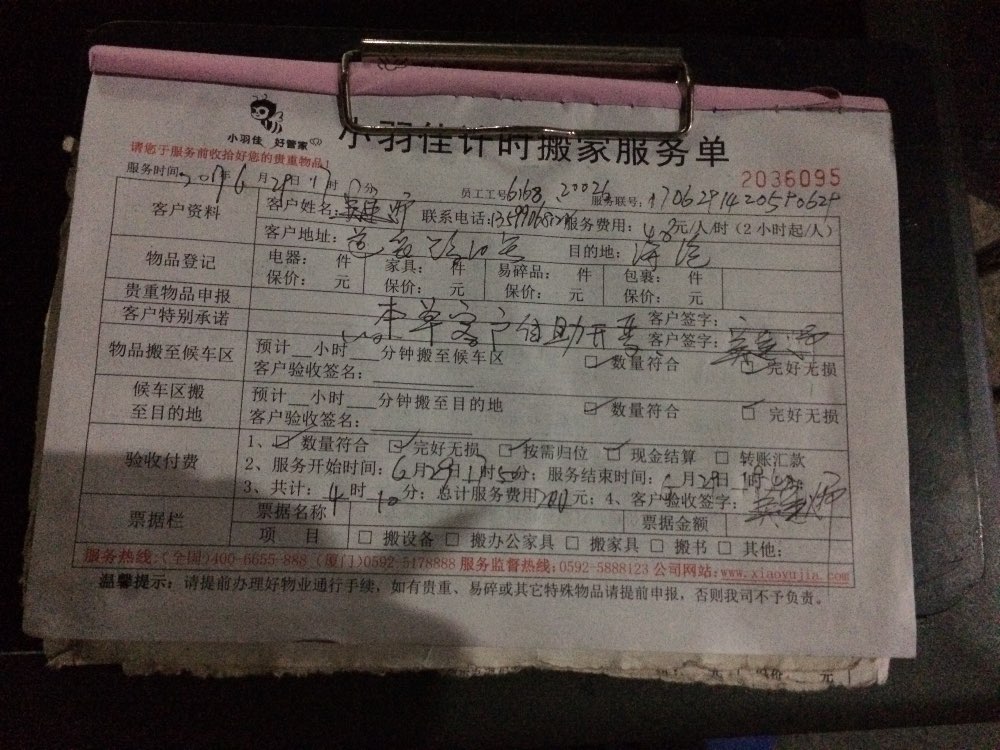 小羽佳 好管家
小羽佳计时搬家服务单
请您于服务前收拾好您的贵重物品!
2036095
服务时间: 年6月29日17时 分 员工工号6168、20026 服务联号:
客户资料 客户姓名: 联系电话: 服务费用:48元/人/时(2小时起/人)
客户地址: 目的地:
物品登记 电器: 件 家具: 件 易碎品: 件 包裹: 件
保价: 元 保价: 元 保价: 元 保价: 元
贵重物品申报 客户签字:
客户特别承诺 本单客户 客户签字:
物品搬至候车区 预计__小时___分钟搬至候车区 ☑数量符合 ☑完好无损
客户验收签名:
候车区搬至目的地 预计__小时___分钟搬至目的地 ☑数量符合 ☑完好无损
客户验收签名:
验收付费 1、☑数量符合 ☑完好无损 ☑按需归位 ☑现金结算 □转账汇款
2、服务开始时间:6月29日17时50分;服务结束时间: 月29日
3、共计:4时10分;总计服务费用 元;4、客户验收签字:
票据栏 票据名称 票据金额
项 目 □搬设备 □搬办公家具 □搬家具 □搬书 □其他:
服务热线:(全国)400-6655-888 (厦门)0592-5178888 服务监督热线:0592-5888123 公司网站:www.xiaoyujia.com
温馨提示:请提前办理好物业通行手续,如有贵重、易碎或其它特殊物品请提前申报,否则我司不予负责。